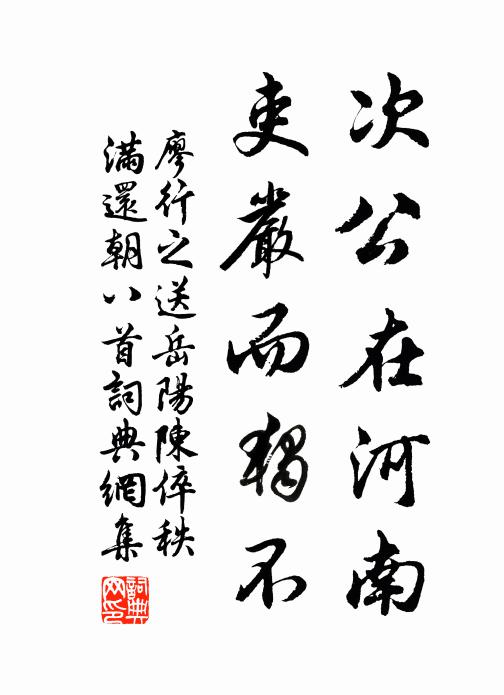 次公在河南
吏嚴而獨不
廖行之送岳陽陳倅秩
滿還朝八首詞典網集
詞典網印